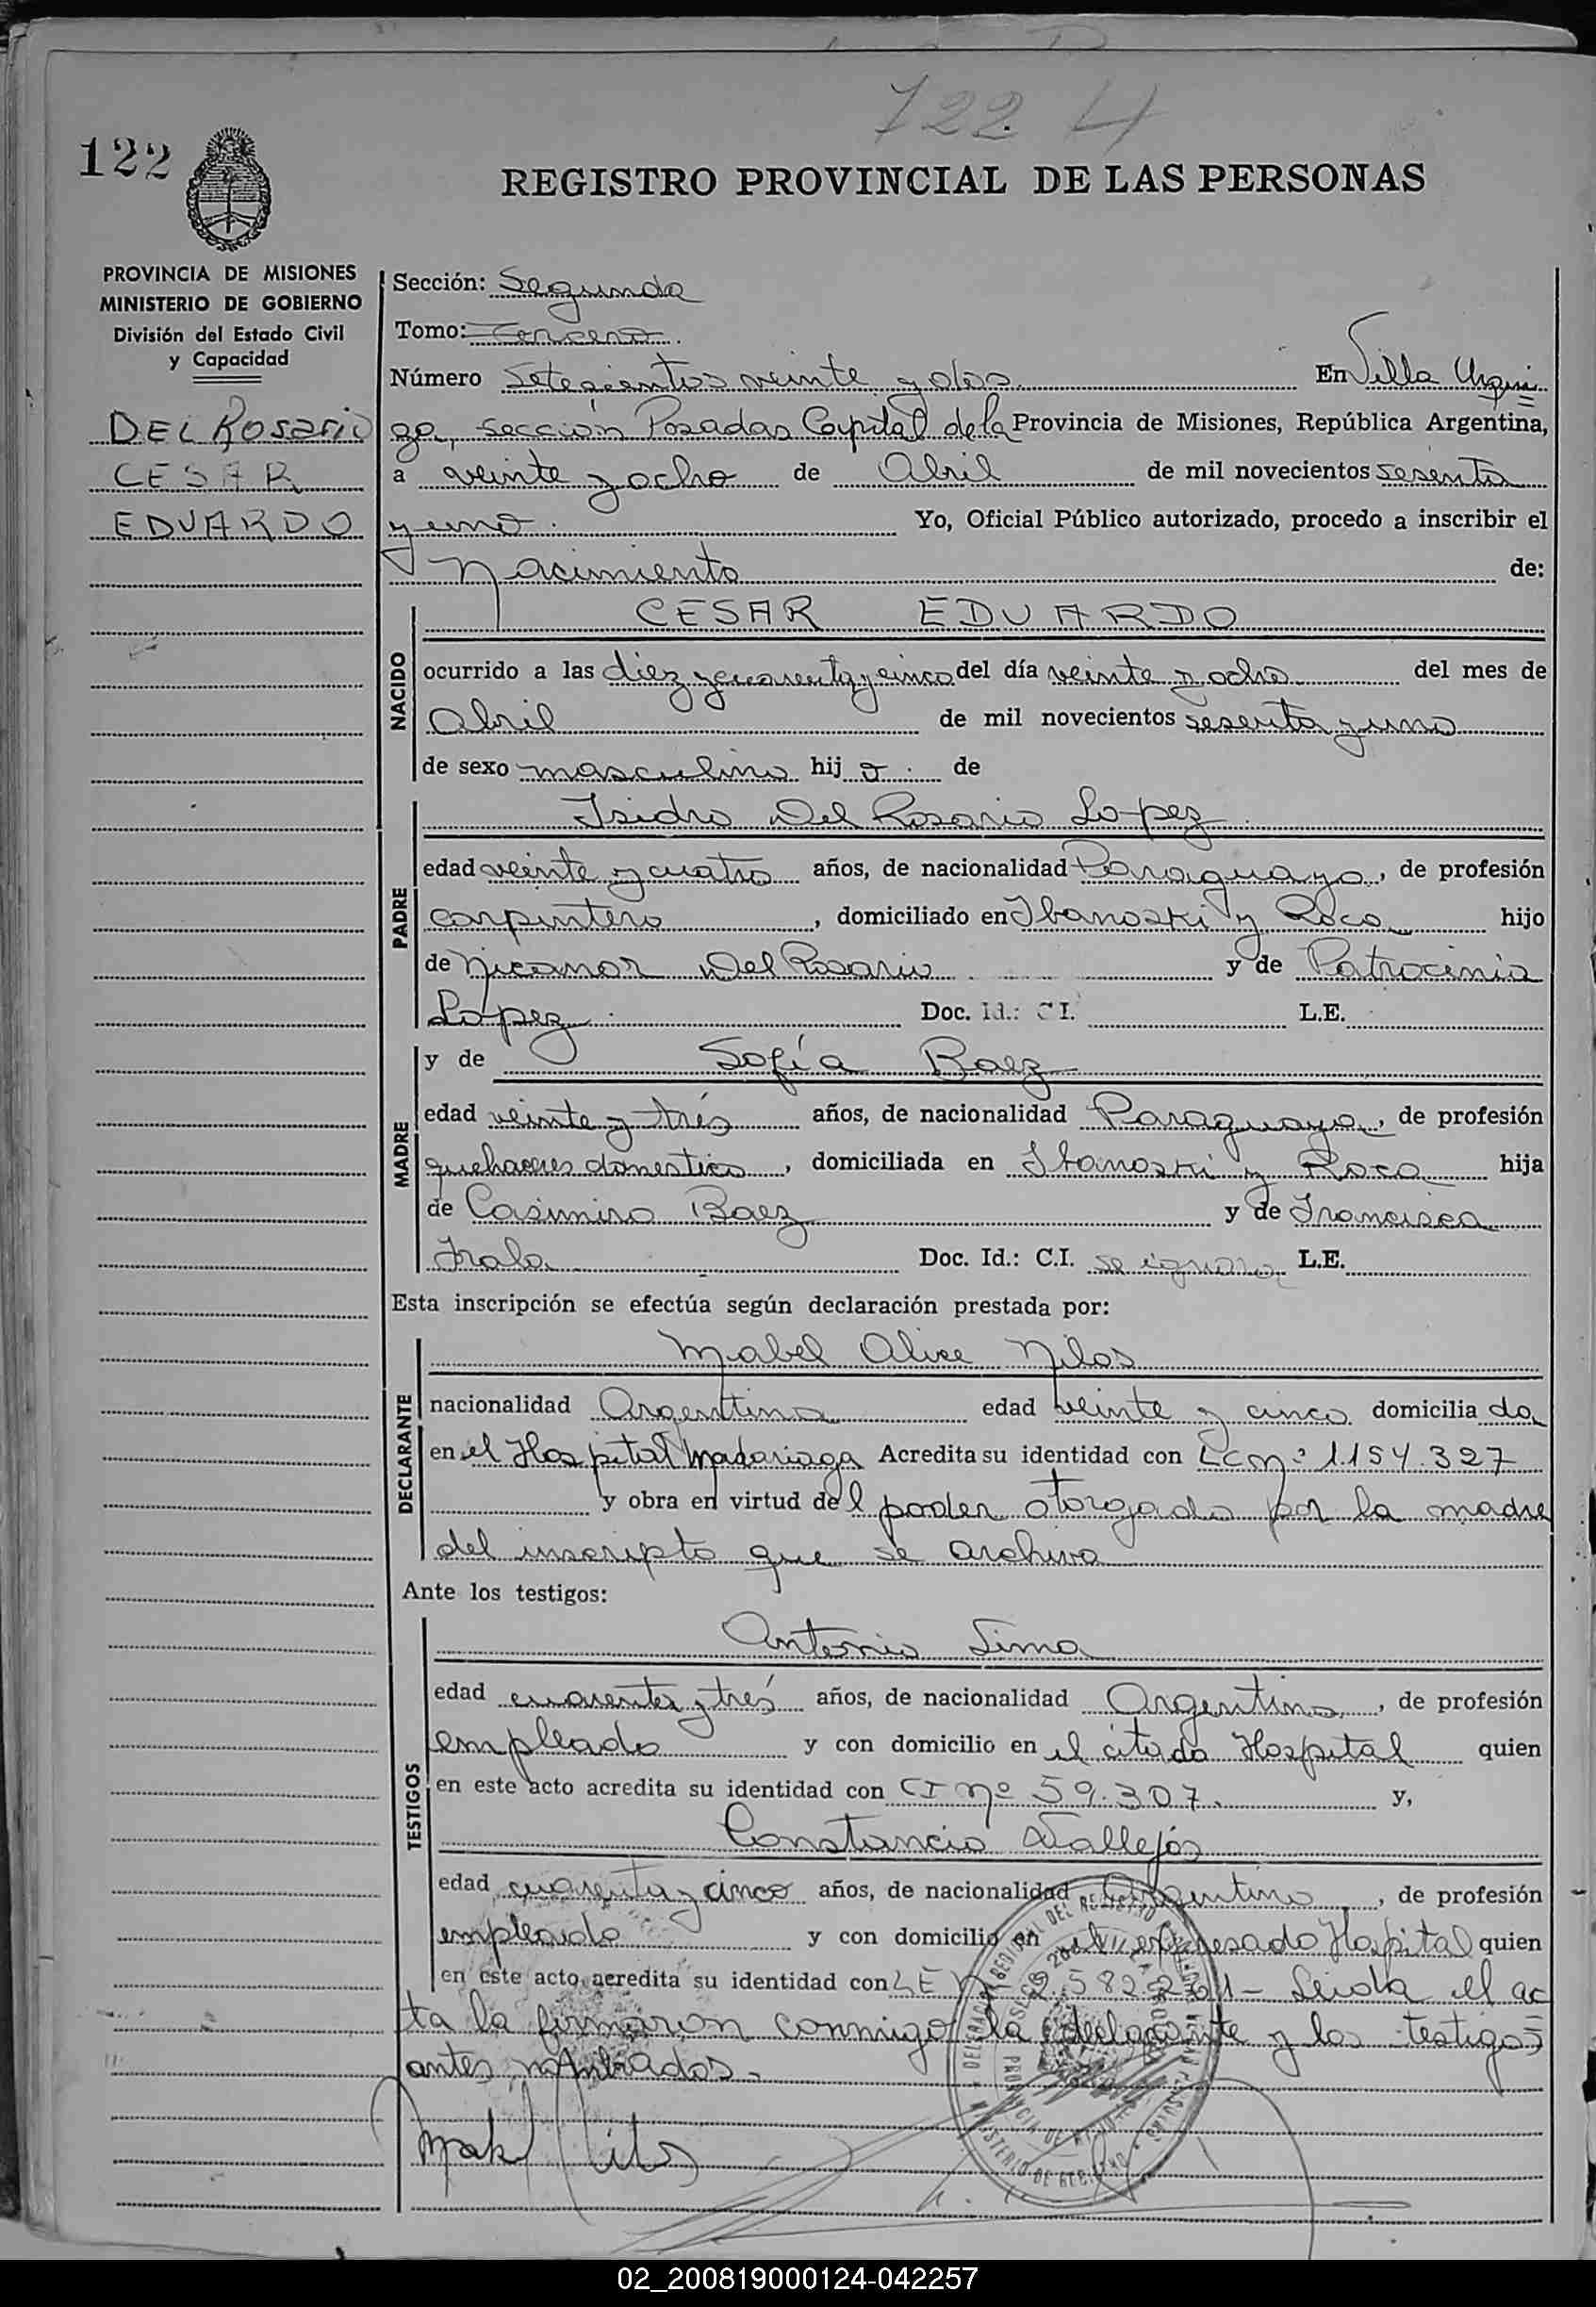 722 H
122
REGISTRO PROVINCIAL DE LAS PERSONAS
PROVINCIA DE MISIONES
MINISTERIO DE GOBIERNO
División del Estado Civil
y Capacidad
DEL ROSARIO
CESAR
EDUARDO
Sección: Segunda
Tomo: Tercero.
Número Setecientos veinte y dos. En Villa Urqui
ga, sección Posadas Capital de la Provincia de Misiones, República Argentina,
a veinte y ocho de Abril de mil novecientos sesenta
y uno. Yo, Oficial Público autorizado, procedo a inscribir el
Nacimiento de:
NACIDO
CESAR EDUARDO
ocurrido a las diez y cuarenta y cinco del día veinte y ocho del mes de
Abril de mil novecientos sesenta y uno
de sexo masculino hijo. de
PADRE
Isidro Del Rosario Lopez
edad veinte y cuatro años, de nacionalidad Paraguaya, de profesión
carpintero, domiciliado en Ibanoski y Roca hijo
de Nicanor Del Rosario y de Patrocinia
Lopez. Doc. Id.: C I. L.E.
MADRE
y de Sofía Baez
edad veinte y trés años, de nacionalidad Paraguaya, de profesión
quehaceres domestico, domiciliada en Ibanoski y Roca hija
de Casimiro Baez y de Francisca
Irala Doc. Id.: C.I. se ignora L.E.
Esta inscripción se efectúa según declaración prestada por:
DECLARANTE
Mabel Alice Nilos
nacionalidad Argentina edad veinte y cinco domicilia da
en el Hospital Madariaga Acredita su identidad con LC nº 1.154.327
y obra en virtud del poder otorgado por la madre
del inscripto que se archiva
Ante los testigos:
TESTIGOS
Antonio Lima
edad cuarenta y trés años, de nacionalidad Argentino, de profesión
empleado y con domicilio en el citado Hospital quien
en este acto acredita su identidad con CI nº 59.307. y,
Constancio Vallejos
edad cuarenta y cinco años, de nacionalidad Argentino, de profesión
empleado y con domicilio en el expresado Hospital quien
en este acto acredita su identidad con LE - Leida el ac
ta la firmaron conmigo la declarante y los testigos
antes nombrados.-
02_200819000124-042257